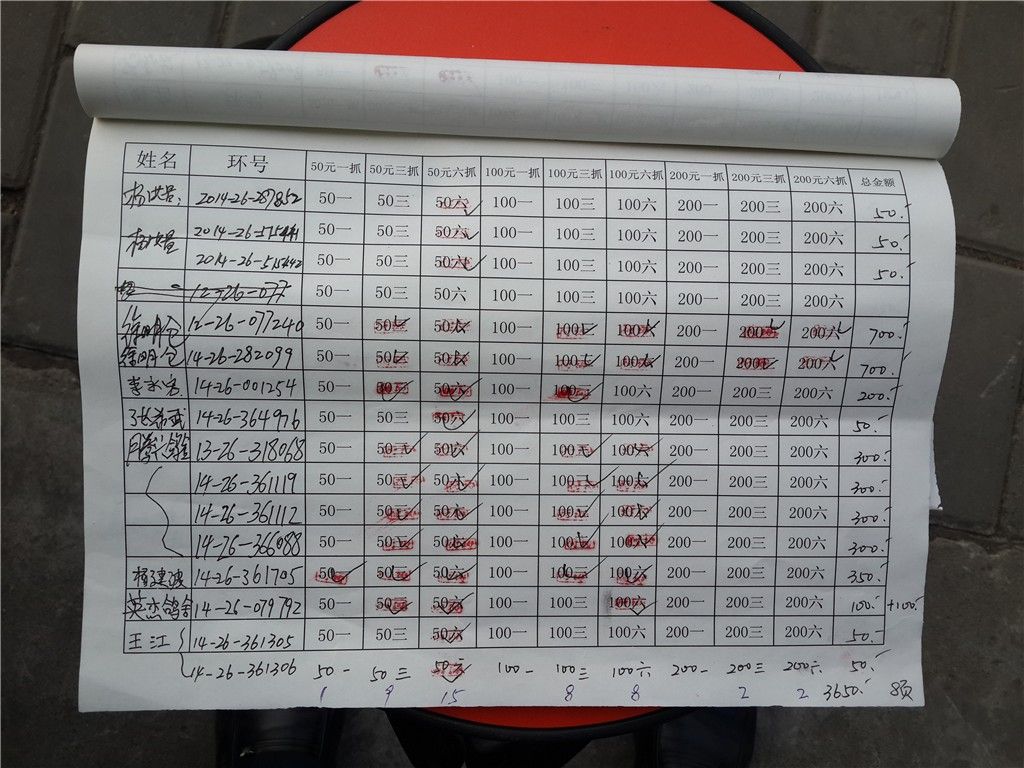 姓名 环号 50元一抓 50元三抓 50元六抓 100元一抓 100元三抓 100元六抓 200元一抓 200元三抓 200元六抓 总金额
2014-26-287852 50一 50三 50六 100一 100三 100六 200一 200三 200六 50.-
50一 50三 50六 100一 100三 100六 200一 200三 200六 50.-
50一 50三 50六 100一 100三 100六 200一 200三 200六 50.-
12-26-077 50一 50三 50六 100一 100三 100六 200一 200三 200六
徐明仓 12-26-077240 50一 50三 50六 100一 100三 100六 200一 200三 200六 700.-
徐明仓 14-26-282099 50一 50三 50六 100一 100三 100六 200一 200三 200六 700.-
14-26-001254 50一 50三 50六 100一 100三 100六 200一 200三 200六 200.-
张希武 14-26-364976 50一 50三 50六 100一 100三 100六 200一 200三 200六 50.-
13-26-318068 50一 50三 50六 100一 100三 100六 200一 200三 200六 300.-
14-26-361119 50一 50三 50六 100一 100三 100六 200一 200三 200六 300.-
14-26-361112 50一 50三 50六 100一 100三 100六 200一 200三 200六 300.-
14-26-366088 50一 50三 50六 100一 100三 100六 200一 200三 200六 300.-
杨建波 14-26-361705 50一 50三 50六 100一 100三 100六 200一 200三 200六 350.-
英杰鸽舍 14-26-079792 50一 50三 50六 100一 100三 100六 200一 200三 200六 100.- +100.-
王江 14-26-361305 50一 50三 50六 100一 100三 100六 200一 200三 200六 50.-
14-26-361306 50一 50三 50六 100一 100三 100六 200一 200三 200六 50.-
1 9 15 8 8 2 2 3650.- 8页